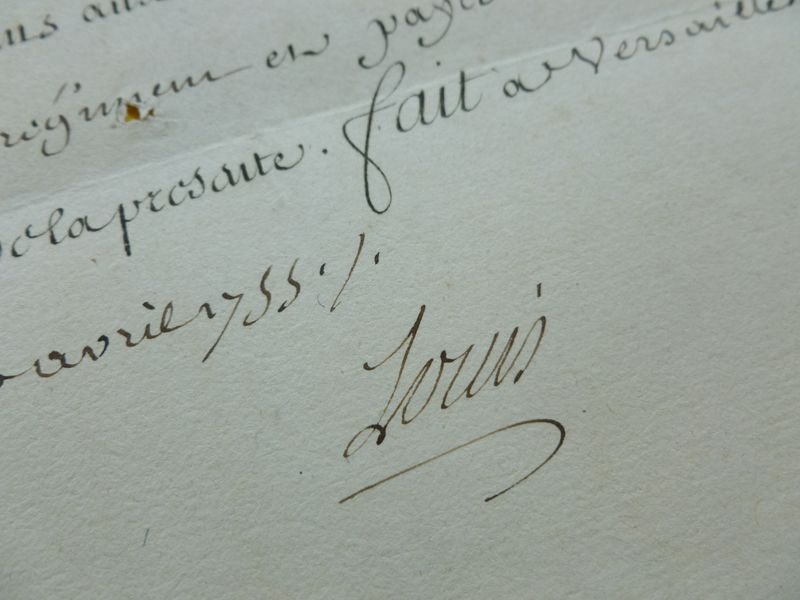 régiment et
de la presante. fait a Versailles
avril 1755 ./.
Louis